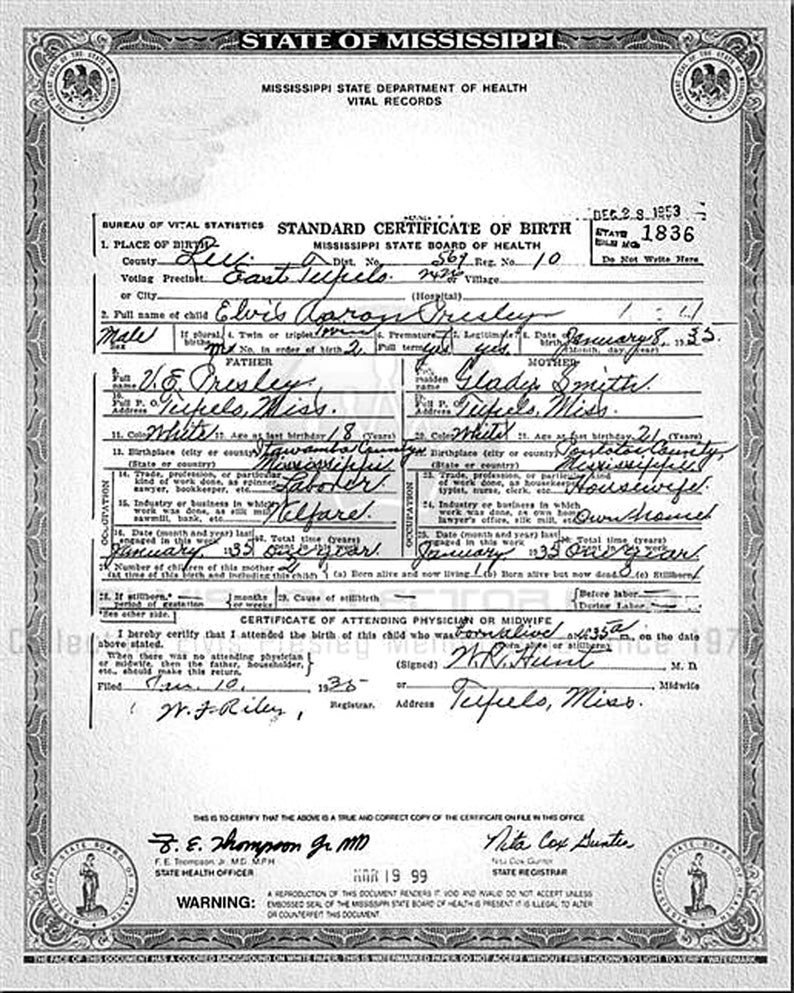 STATE OF MISSISSIPPI
MISSISSIPPI STATE DEPARTMENT OF HEALTH
VITAL RECORDS
DEC 28 1953
BUREAU OF VITAL STATISTICS STANDARD CERTIFICATE OF BIRTH STATE FILE NO. 1836
1. PLACE OF BIRTH MISSISSIPPI STATE BOARD OF HEALTH
County Lee Dist. No. 569 Reg. No. 10 Do Not Write Here
Voting Precinct East Tupelo or Village
or City (Hospital)
2. Full name of child Elvis Aaron Presley
Male Sex If plural births 4. Twin or triplet Twin No. in order of birth 2 6. Premature Full term yes 7. Legitimate? yes 8. Date of birth January 8, 1935.
(Month, day, year)
FATHER MOTHER
9. Full name V. E. Presley Full maiden name Gladys Smith
10. Full P. O. Address Tupelo, Miss. Full P. O. Address Tupelo, Miss.
11. Color White 12. Age at last birthday 18 (Years) 20. Color White 21. Age at last birthday 21 (Years)
13. Birthplace (city or county) Itawamba County Birthplace (city or county) Pontotoc County
(State or country) Mississippi (State or country) Mississippi
OCCUPATION 14. Trade, profession, or particular kind of work done, as spinner, sawyer, bookkeeper, etc. Laborer OCCUPATION 23. Trade, profession, or particular kind of work done, as housekeeper, typist, nurse, clerk, etc. Housewife
15. Industry or business in which work was done, as silk mill, sawmill, bank, etc. Welfare 24. Industry or business in which work was done, as own home, lawyer's office, silk mill, etc. Own home
16. Date (month and year) last engaged in this work January 1935 Total time (years) one year 25. Date (month and year) last engaged in this work January 1935 Total time (years) one year
27. Number of children of this mother 2
(at time of this birth and including this child) (a) Born alive and now living 1 (b) Born alive but now dead (c) Stillborn 1
28. If stillborn,* period of gestation months or weeks 29. Cause of stillbirth Before labor During Labor
*See other side.
CERTIFICATE OF ATTENDING PHYSICIAN OR MIDWIFE
I hereby certify that I attended the birth of this child who was born alive at 4:35 a m, on the date
above stated. (Born alive or stillborn)
When there was no attending physician or midwife, then the father, householder, etc., should make this return. (Signed) W. R. Hunt M. D.
Filed Jan. 10, 1935 or Midwife
W. F. Riley, Registrar. Address Tupelo, Miss.
THIS IS TO CERTIFY THAT THE ABOVE IS A TRUE AND CORRECT COPY OF THE CERTIFICATE ON FILE IN THIS OFFICE
F. E. Thompson Jr. MD Nita Cox Gunter
F. E. Thompson, Jr., M.D., M.P.H. Nita Cox Gunter
STATE HEALTH OFFICER MAR 19 99 STATE REGISTRAR
WARNING: A REPRODUCTION OF THIS DOCUMENT RENDERS IT VOID AND INVALID. DO NOT ACCEPT UNLESS
EMBOSSED SEAL OF THE MISSISSIPPI STATE BOARD OF HEALTH IS PRESENT. IT IS ILLEGAL TO ALTER
OR COUNTERFEIT THIS DOCUMENT.
THE FACE OF THIS DOCUMENT HAS A COLORED BACKGROUND ON WHITE PAPER. THIS IS WATERMARKED PAPER. DO NOT ACCEPT WITHOUT FIRST HOLDING TO LIGHT TO VERIFY WATERMARK.